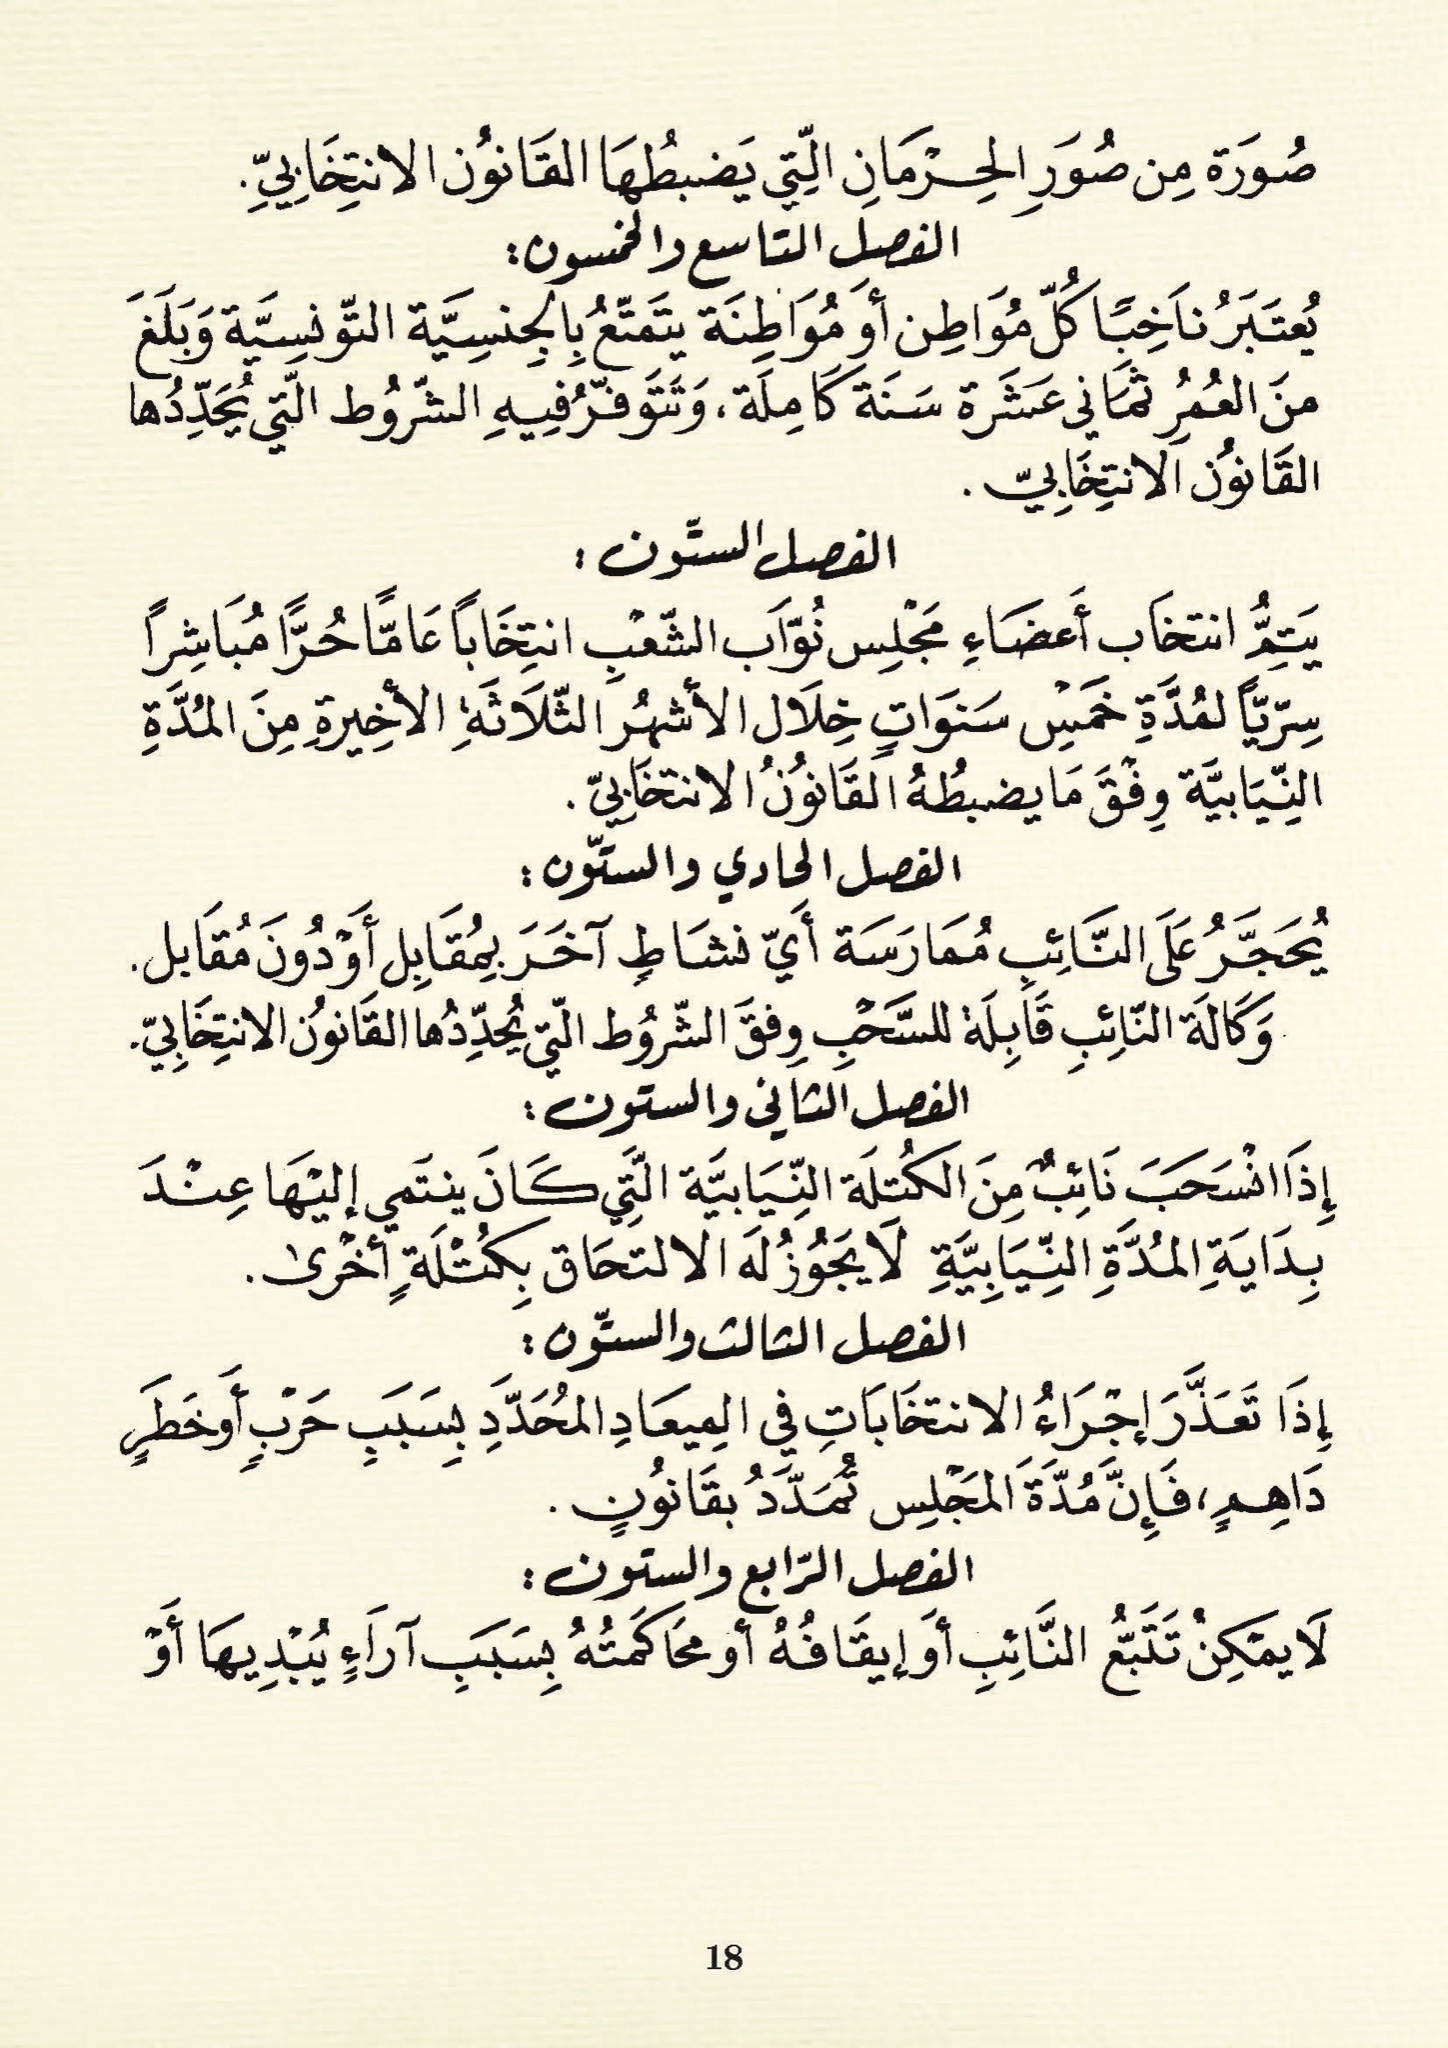 صُورَة مِن صُوَرِ الحِرْمَانِ الِّتِي يَضبطُهَا القَانُون الانتِخَابِيِّ.
الفصل التاسع والخمسون:
يُعتَبَرُ نَاخِبًا كُلّ مُوَاطِن أو مُوَاطِنَة يتَمتّعُ بِالجِنسِيَّة التّونسِيَّة وَبَلَغَ
منَ العُمُرِ ثمَاني عَشَرة سَنَة كَامِلَة، وَتَتَوفّرُ فِيهِ الشّرُوط الّتي يُحَدِّدُها
القَانُون الانتِخَابيّ.
الفصل الستّون:
يَتِمُّ انتخَاب أَعضَاءِ مَجْلِس نُوّاَب الشّعْبِ انتِخَاباً عَامًّا حُرًّا مُبَاشِراً
سِرّيّاً لمُدَّةِ خَمْسِ سَنوَاتٍ خِلَال الأشهُر الثّلَاثَةِ الأخِيرةِ مِنَ المُدَّةِ
النِّيَابيَّة وِفْقَ مَا يضبطُهُ القَانُونُ الانتخَابيّ.
الفصل الحادي والستّون:
يُحَجَّرُ عَلَى النَّائِبِ مُمَارَسَة أَيّ نشَاطٍ آخَرَ بِمُقَابِل أَوْ دُونَ مُقَابل.
وَكَالَة النّائِبِ قَابِلَة للسَّحْبِ وِفقَ الشّرُوط الّتي يُحدِّدُها القَانُون الانتِخَابِيّ.
الفصل الثاني والستون:
إِذَا انْسَحَبَ نَائِبٌ مِنَ الكُتلَة النِّيَابيَّة الَّتِي كَانَ ينتَمي إليْهَا عِنْدَ
بِدَايَةِ المُدَّةِ النِّيَابِيَّةِ لَا يَجُوزُ لَه الالتحَاق بِكُتْلَةٍ أخْرى.
الفصل الثالث والستّون:
إِذَا تَعَذَّرَ إجْرَاءُ الانتخَابَاتِ في المِيعَادِ المُحَدَّدِ بِسَبَبِ حَرْبٍ أَو خَطَرٍ
دَاهِمٍ، فَإِنَّ مُدَّةَ المَجْلِس تُمَدَّدُ بقَانُونٍ.
الفصل الرّابع والستون:
لَا يمْكِنُ تَتَبّعُ النَّائِبِ أو إيقَافُهُ أو محَاكَمتُهُ بِسَبَبِ آرَاءٍ يُبْدِيهَا أَوْ
18